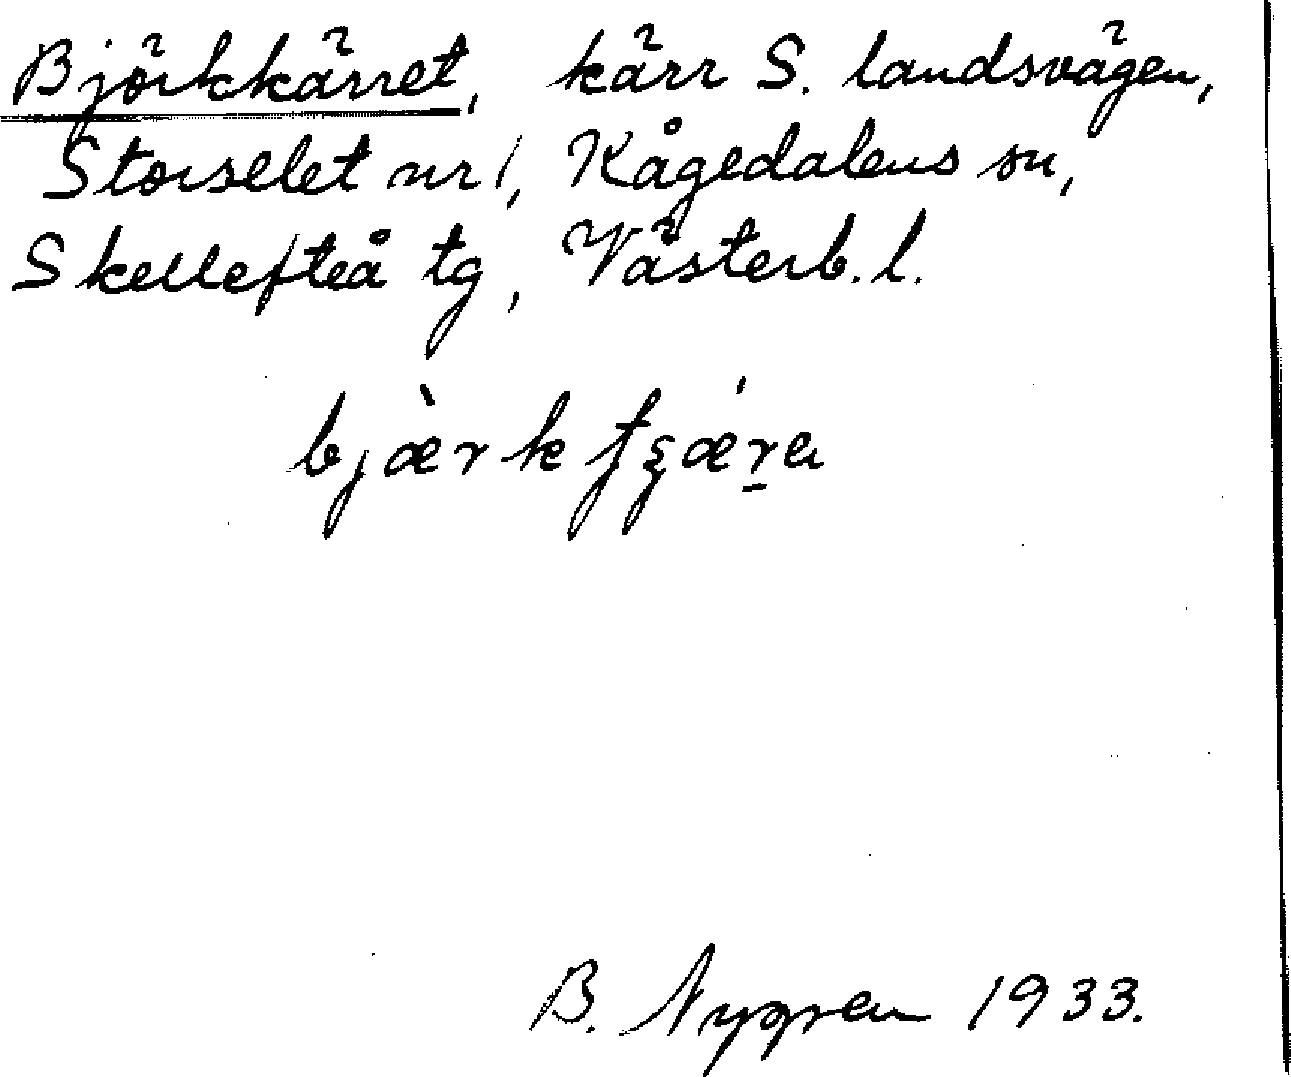 Björkkärret, kärr S. landsvägen,
Storselet nr 1, Kågedalens sn,
Skellefteå tg, Västerb. l.
bjæ̀rkʃʂǽr̲a
B. Nygren 1933.